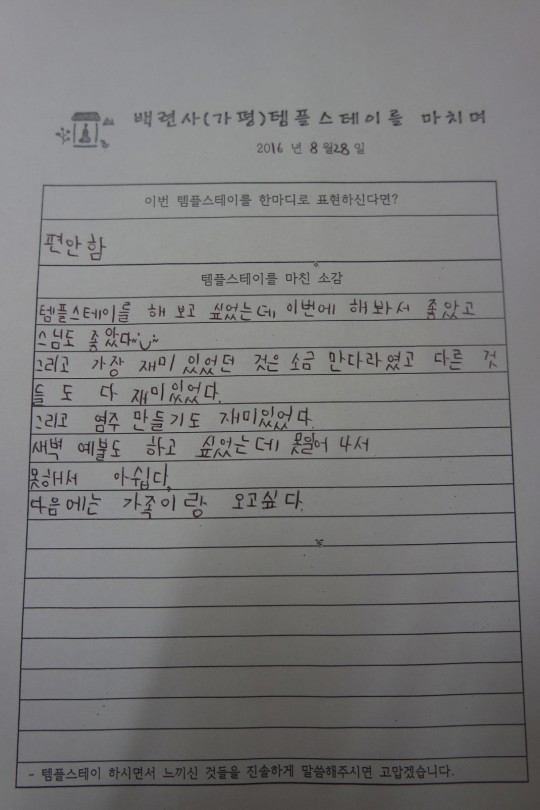 백련사(가평)템플스테이를 마치며
2016 년 8 월 28 일
이번 템플스테이를 한마디로 표현하신다면?
편안함
템플스테이를 마친 소감
템플스테이를 해 보고 싶었는데 이번에 해봐서 좋았고
스님도 좋았다~
그리고 가장 재미 있었던 것은 소금 만다라였고 다른 것
들 도 다 재미있었다.
그리고 염주 만들기도 재미있었다.
새벽 예불도 하고 싶었는데 못일어 나서
못해서 아쉽다.
다음에는 가족이랑 오고싶다.
- 템플스테이 하시면서 느끼신 것들을 진솔하게 말씀해주시면 고맙겠습니다.